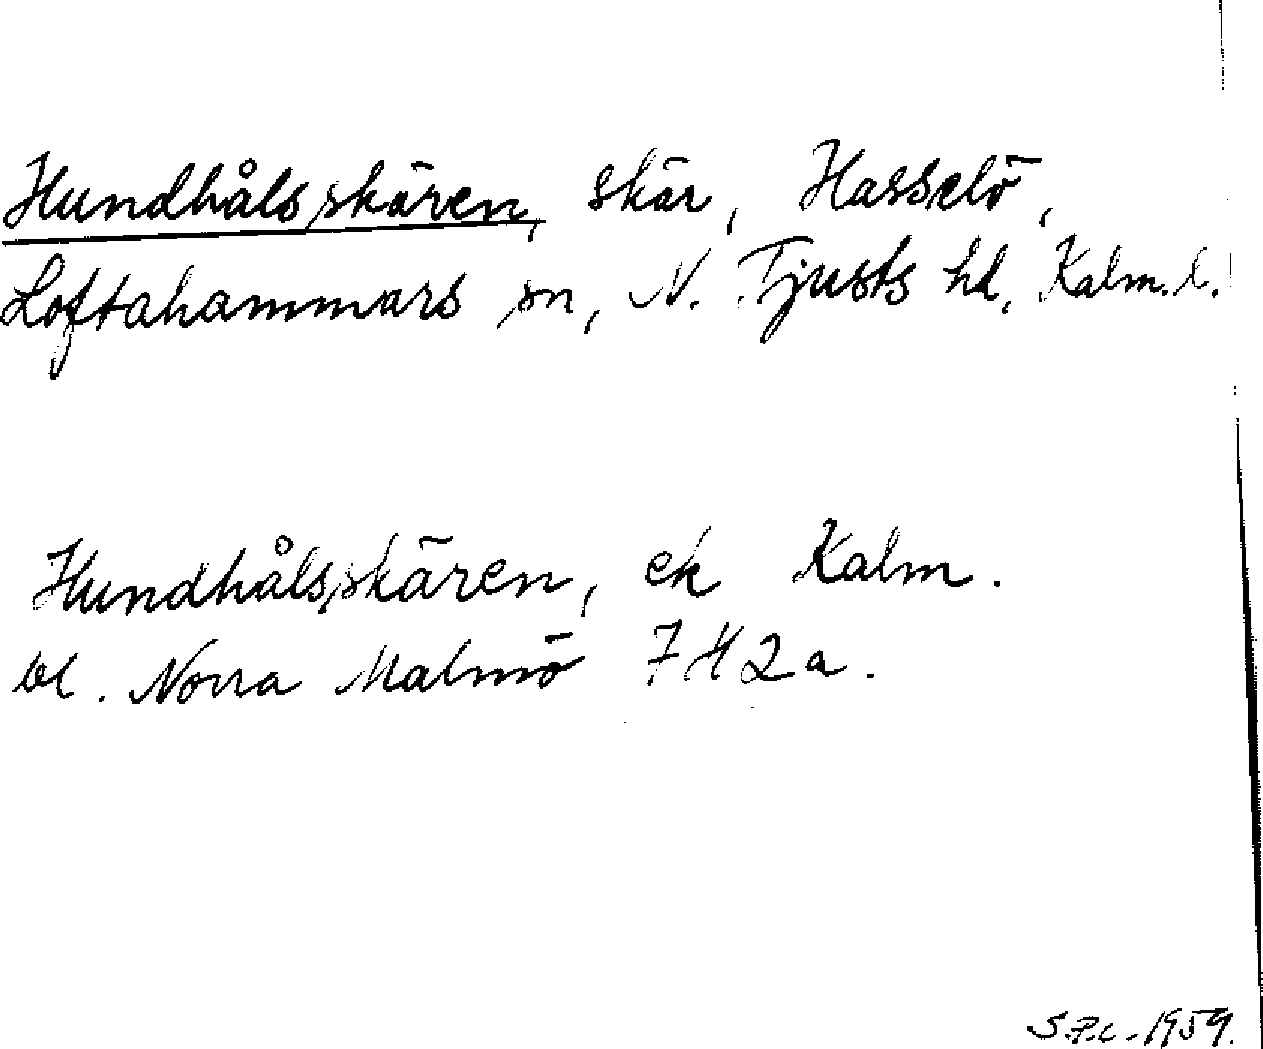 Hundhålsskären, skär, Hasselö,
Loftahammars sn, N. Tjusts hd, Kalm. l.
Hundhålsskären, ek Kalm.
bl. Norra Malmö 7H2a.
S.P.C. 1959.